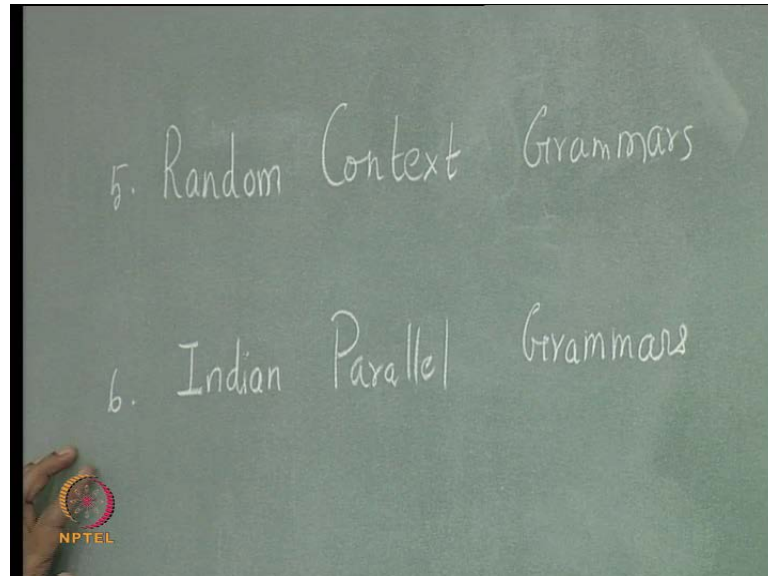 5. Random Context Grammars
6. Indian Parallel Grammars
NPTEL